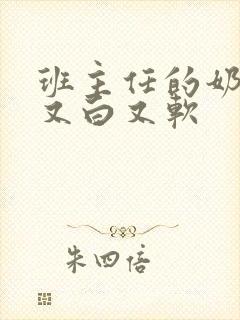 班主任的奶
又白又软
朱四倍